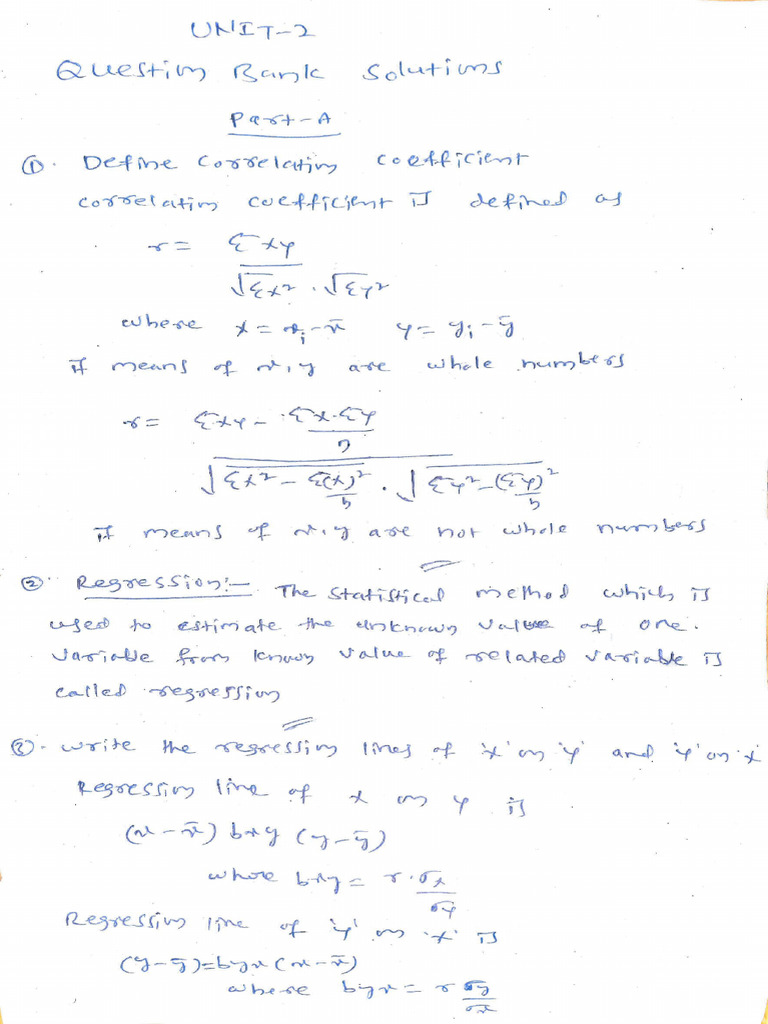 UNIT-2
Question Bank Solutions
Part-A
①. Define Correlation coefficient
correlation coefficient is defined as
r = Σxy / √Σx² . √Σy²
where x = xᵢ - x̄ y = yᵢ - ȳ
if means of x, y are whole numbers
r = Σxy - Σx.Σy/n / √Σx² - Σ(x)²/n . √Σy² - (Σy)²/n
if means of x, y are not whole numbers
②. Regression:- The statistical method which is
used to estimate the unknown value of one.
variable from known value of related variable is
called regression
②. write the regression lines of 'x' on 'y' and 'y' on 'x'
Regression line of x on y is
(x - x̄) bxy (y - ȳ)
where bxy = r . σx/σy
Regression line of 'y' on 'x' is
(y - ȳ) = byx (x - x̄)
where byx = r σy/σx